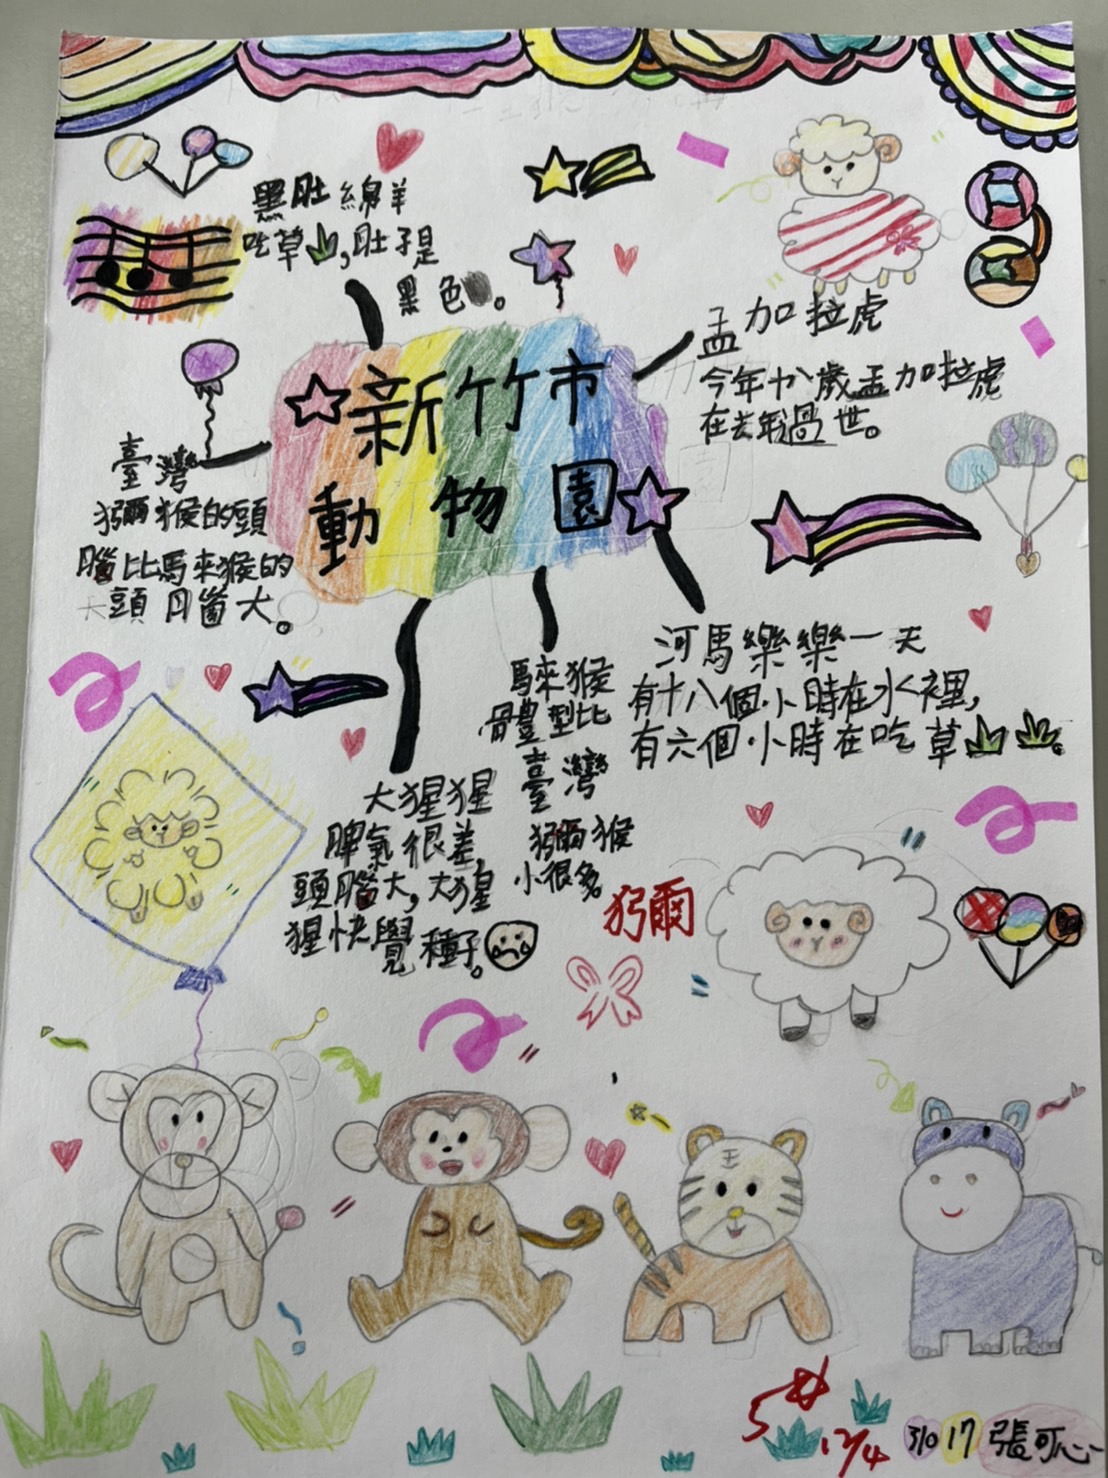 黑肚綿羊
吃草,肚子是
黑色。
新竹市
動物園
孟加拉虎
今年十八歲孟加拉虎
在去年過世。
臺灣
獼猴的頭
腦比馬來猴的
大頭腦大。
馬來猴
體型比
臺灣
獼猴
小很多
河馬樂樂一天
有十八個小時在水裡,
有六個小時在吃草。
大猩猩
脾氣很差,
頭腦大,大猩
猩快覺種子。
獼
12/4
310 17 張可心